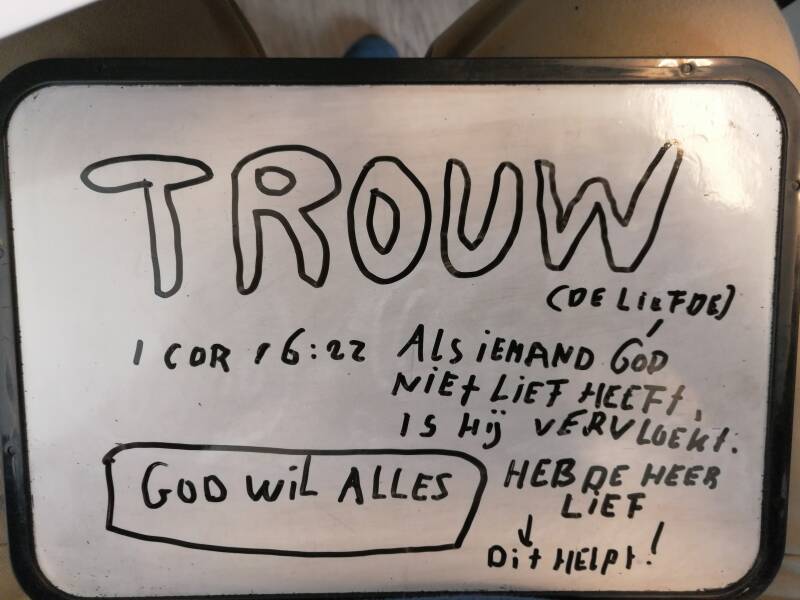 TROUW
(DE LiEFDE)
1 COR 16:22 ALS iEMAND GOD
NiEt LiEF HEEFt,
IS Hij VERVLOEKt.
GOD WiL ALLES
HEB DE HEER
LiEF
↓
Dit HELPt!